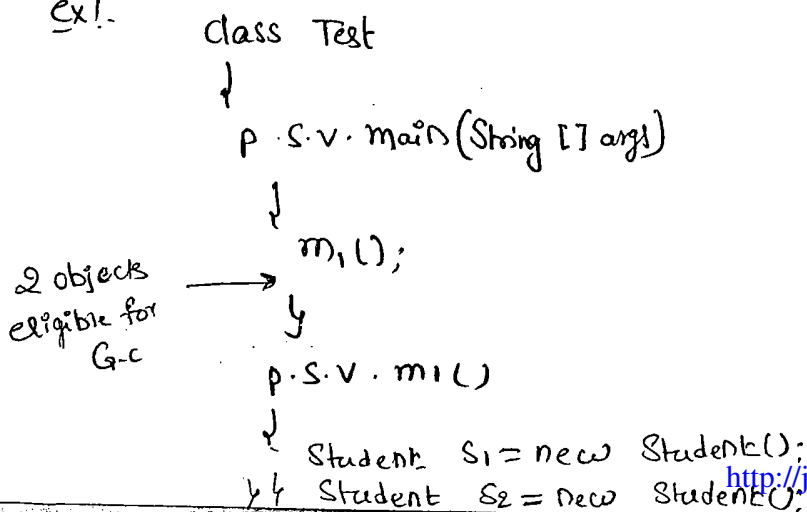 ex!-
class Test
{
p.s.v. main(String [] args)
{
m1();
2 objects
eligible for
G-C
}
p.s.v. m1()
{
Student S1 = new Student();
}} Student S2 = new Student();
http://j